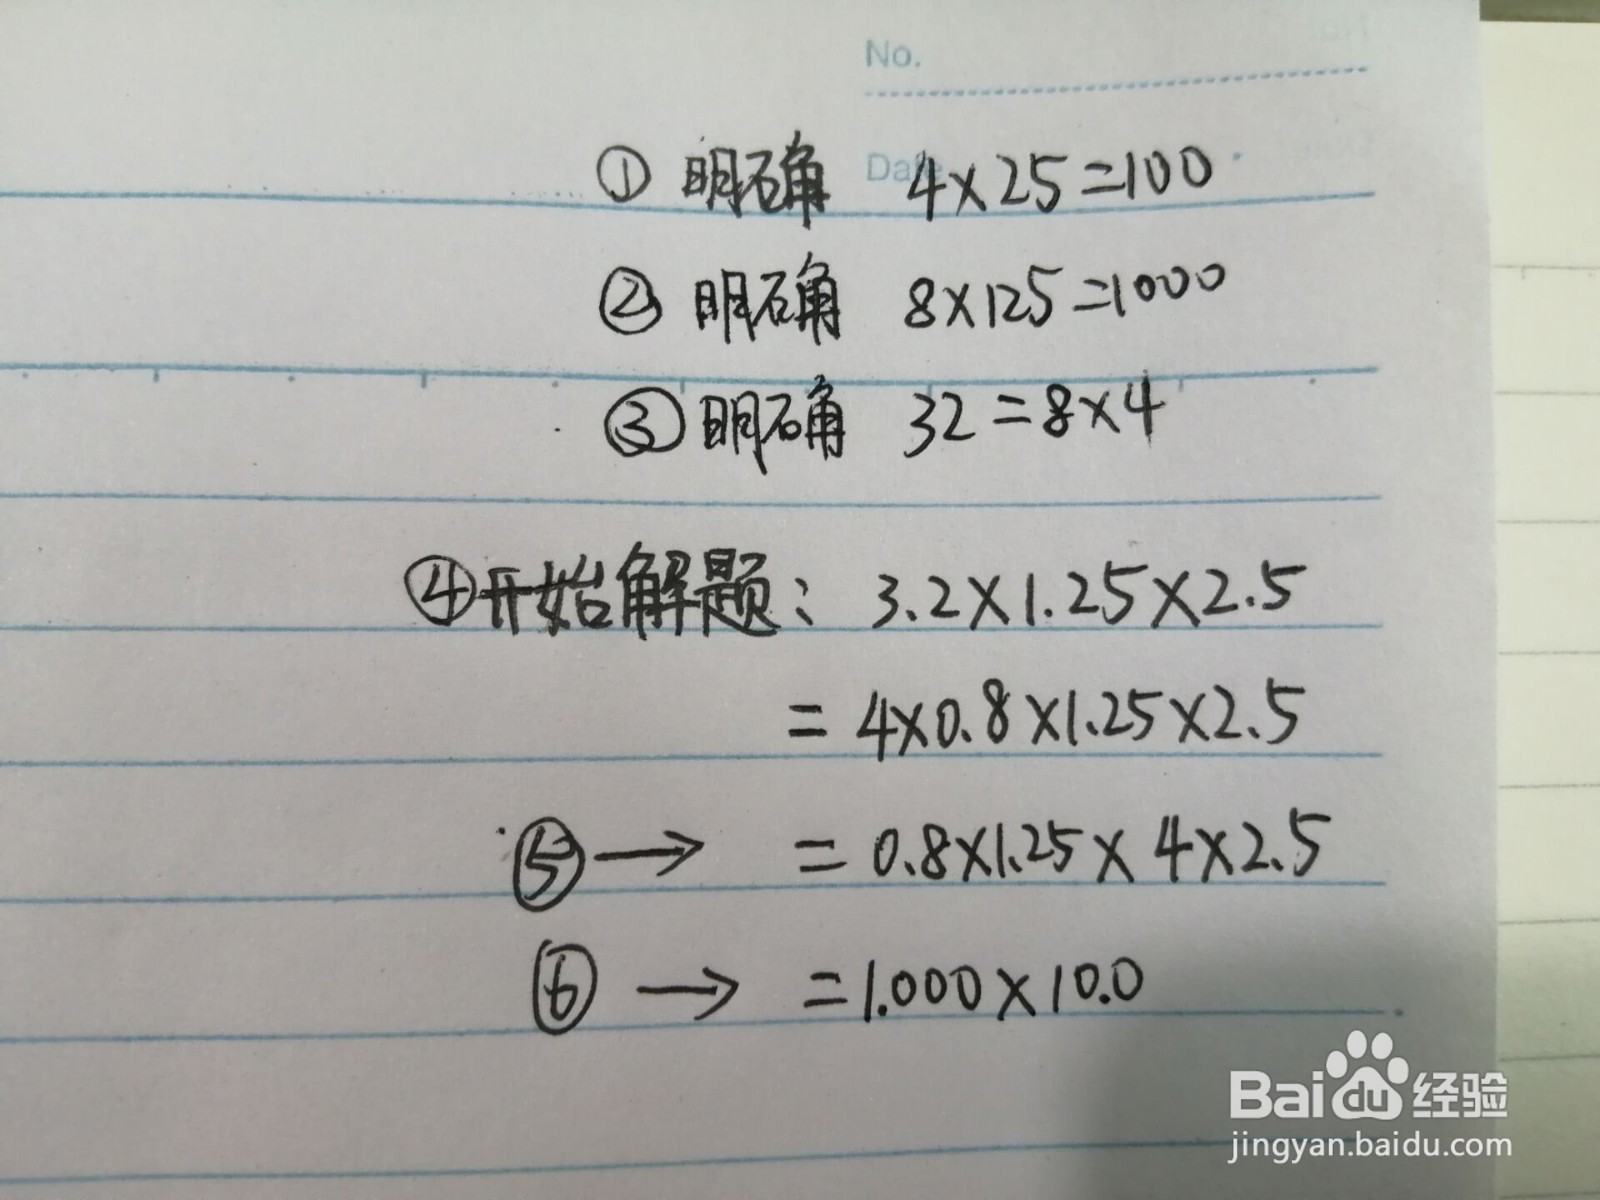 No.
Date
① 明确 4×25=100
② 明确 8×125=1000
③ 明确 32=8×4
④开始解题: 3.2×1.25×2.5
=4×0.8×1.25×2.5
⑤→ =0.8×1.25×4×2.5
⑥→ =1.000×10.0
Baidu经验
jingyan.baidu.com